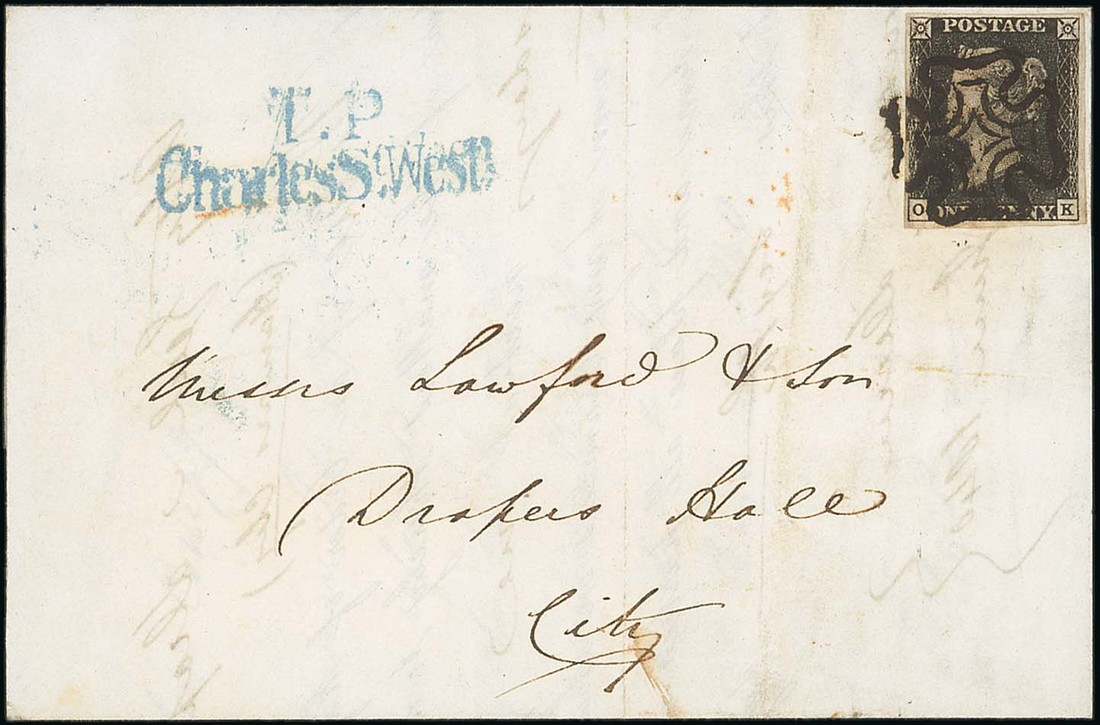 POSTAGE
T.P
Charles St. West.
O ONE PENNY K
Messrs Lawford & Son
Drapers Hall
City